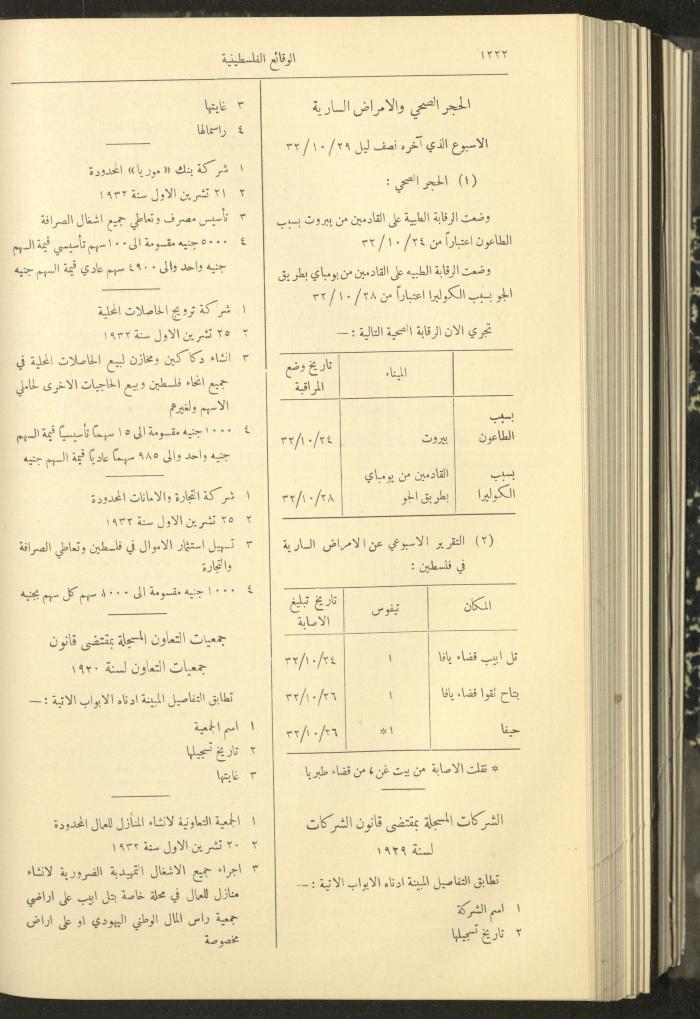 ١٢٢٢
الوقائع الفلسطينية
الحجر الصحي والامراض السارية
الاسبوع الذي آخره نصف ليل ٢٩/١٠/٣٢
(١) الحجر الصحي :
وضعت الرقابة الطبية على القادمين من بيروت بسبب
الطاعون اعتباراً من ٢٤/١٠/٣٢
وضعت الرقابة الطبيه على القادمين من بومباي بطريق
الجو بسبب الكوليرا اعتباراً من ٢٨/١٠/٣٢
تجري الان الرقابة الصحية التالية :—
الميناء
تاريخ وضع
المراقبة
بسبب
الطاعون بيروت ٢٤/١٠/٣٢
بسبب القادمين من بومباي
الكوليرا بطريق الجو ٢٨/١٠/٣٢
(٢) التقرير الاسبوعي عن الامراض السارية
في فلسطين :
المكان تيفوس تاريخ تبليغ
الاصابة
تل ابيب قضاء يافا ١ ٢٤/١٠/٣٢
بتاح تقوا قضاء يافا ١ ٢٦/١٠/٣٢
حيفا ١* ٢٦/١٠/٣٢
* نقلت الاصابة من بيت غن، من قضاء طبريا
الشركات المسجلة بمقتضى قانون الشركات
لسنة ١٩٢٩
تطابق التفاصيل المبينة ادناه الابواب الاتية :—
١ اسم الشركة
٢ تاريخ تسجيلها
٣ غايتها
٤ راسمالها
١ شركة بنك «موريا» المحدودة
٢ ٢١ تشرين الاول سنة ١٩٣٢
٣ تأسيس مصرف وتعاطي جميع اشغال الصرافة
٤ ٥٠٠٠ جنيه مقسومة الى ١٠٠ سهم تأسيسي قيمة السهم
جنيه واحد والى ٤٩٠٠ سهم عادي قيمة السهم جنيه
١ شركة ترويج الحاصلات المحلية
٢ ٢٥ تشرين الاول سنة ١٩٣٢
٣ انشاء دكاكين ومخازن لبيع الحاصلات المحلية في
جميع انحاء فلسطين وبيع الحاجيات الاخرى لحاملي
الاسهم ولغيرهم
٤ ١٠٠٠ جنيه مقسومة الى ١٥ سهمًا تأسيسيًا قيمة السهم
جنيه واحد والى ٩٨٥ سهمًا عاديًا قيمة السهم جنيه
١ شركة التجارة والامانات المحدودة
٢ ٢٥ تشرين الاول سنة ١٩٣٢
٣ تسهيل استثمار الاموال في فلسطين وتعاطي الصرافة
والتجارة
٤ ١٠٠٠ جنيه مقسومة الى ١٠٠٠ سهم كل سهم بجنيه
جمعيات التعاون المسجلة بمقتضى قانون
جمعيات التعاون لسنة ١٩٢٠
تطابق التفاصيل المبينة ادناه الابواب الاتية :—
١ اسم الجمعية
٢ تاريخ تسجيلها
٣ غايتها
١ الجمعية التعاونية لانشاء المنازل للعمال المحدودة
٢ ٢٠ تشرين الاول سنة ١٩٣٢
٣ اجراء جميع الاشغال التمهيدية الضرورية لانشاء
منازل للعمال في محلة خاصة بتل ابيب على اراضي
جمعية راس المال الوطني اليهودي او على اراض
مخصوصة